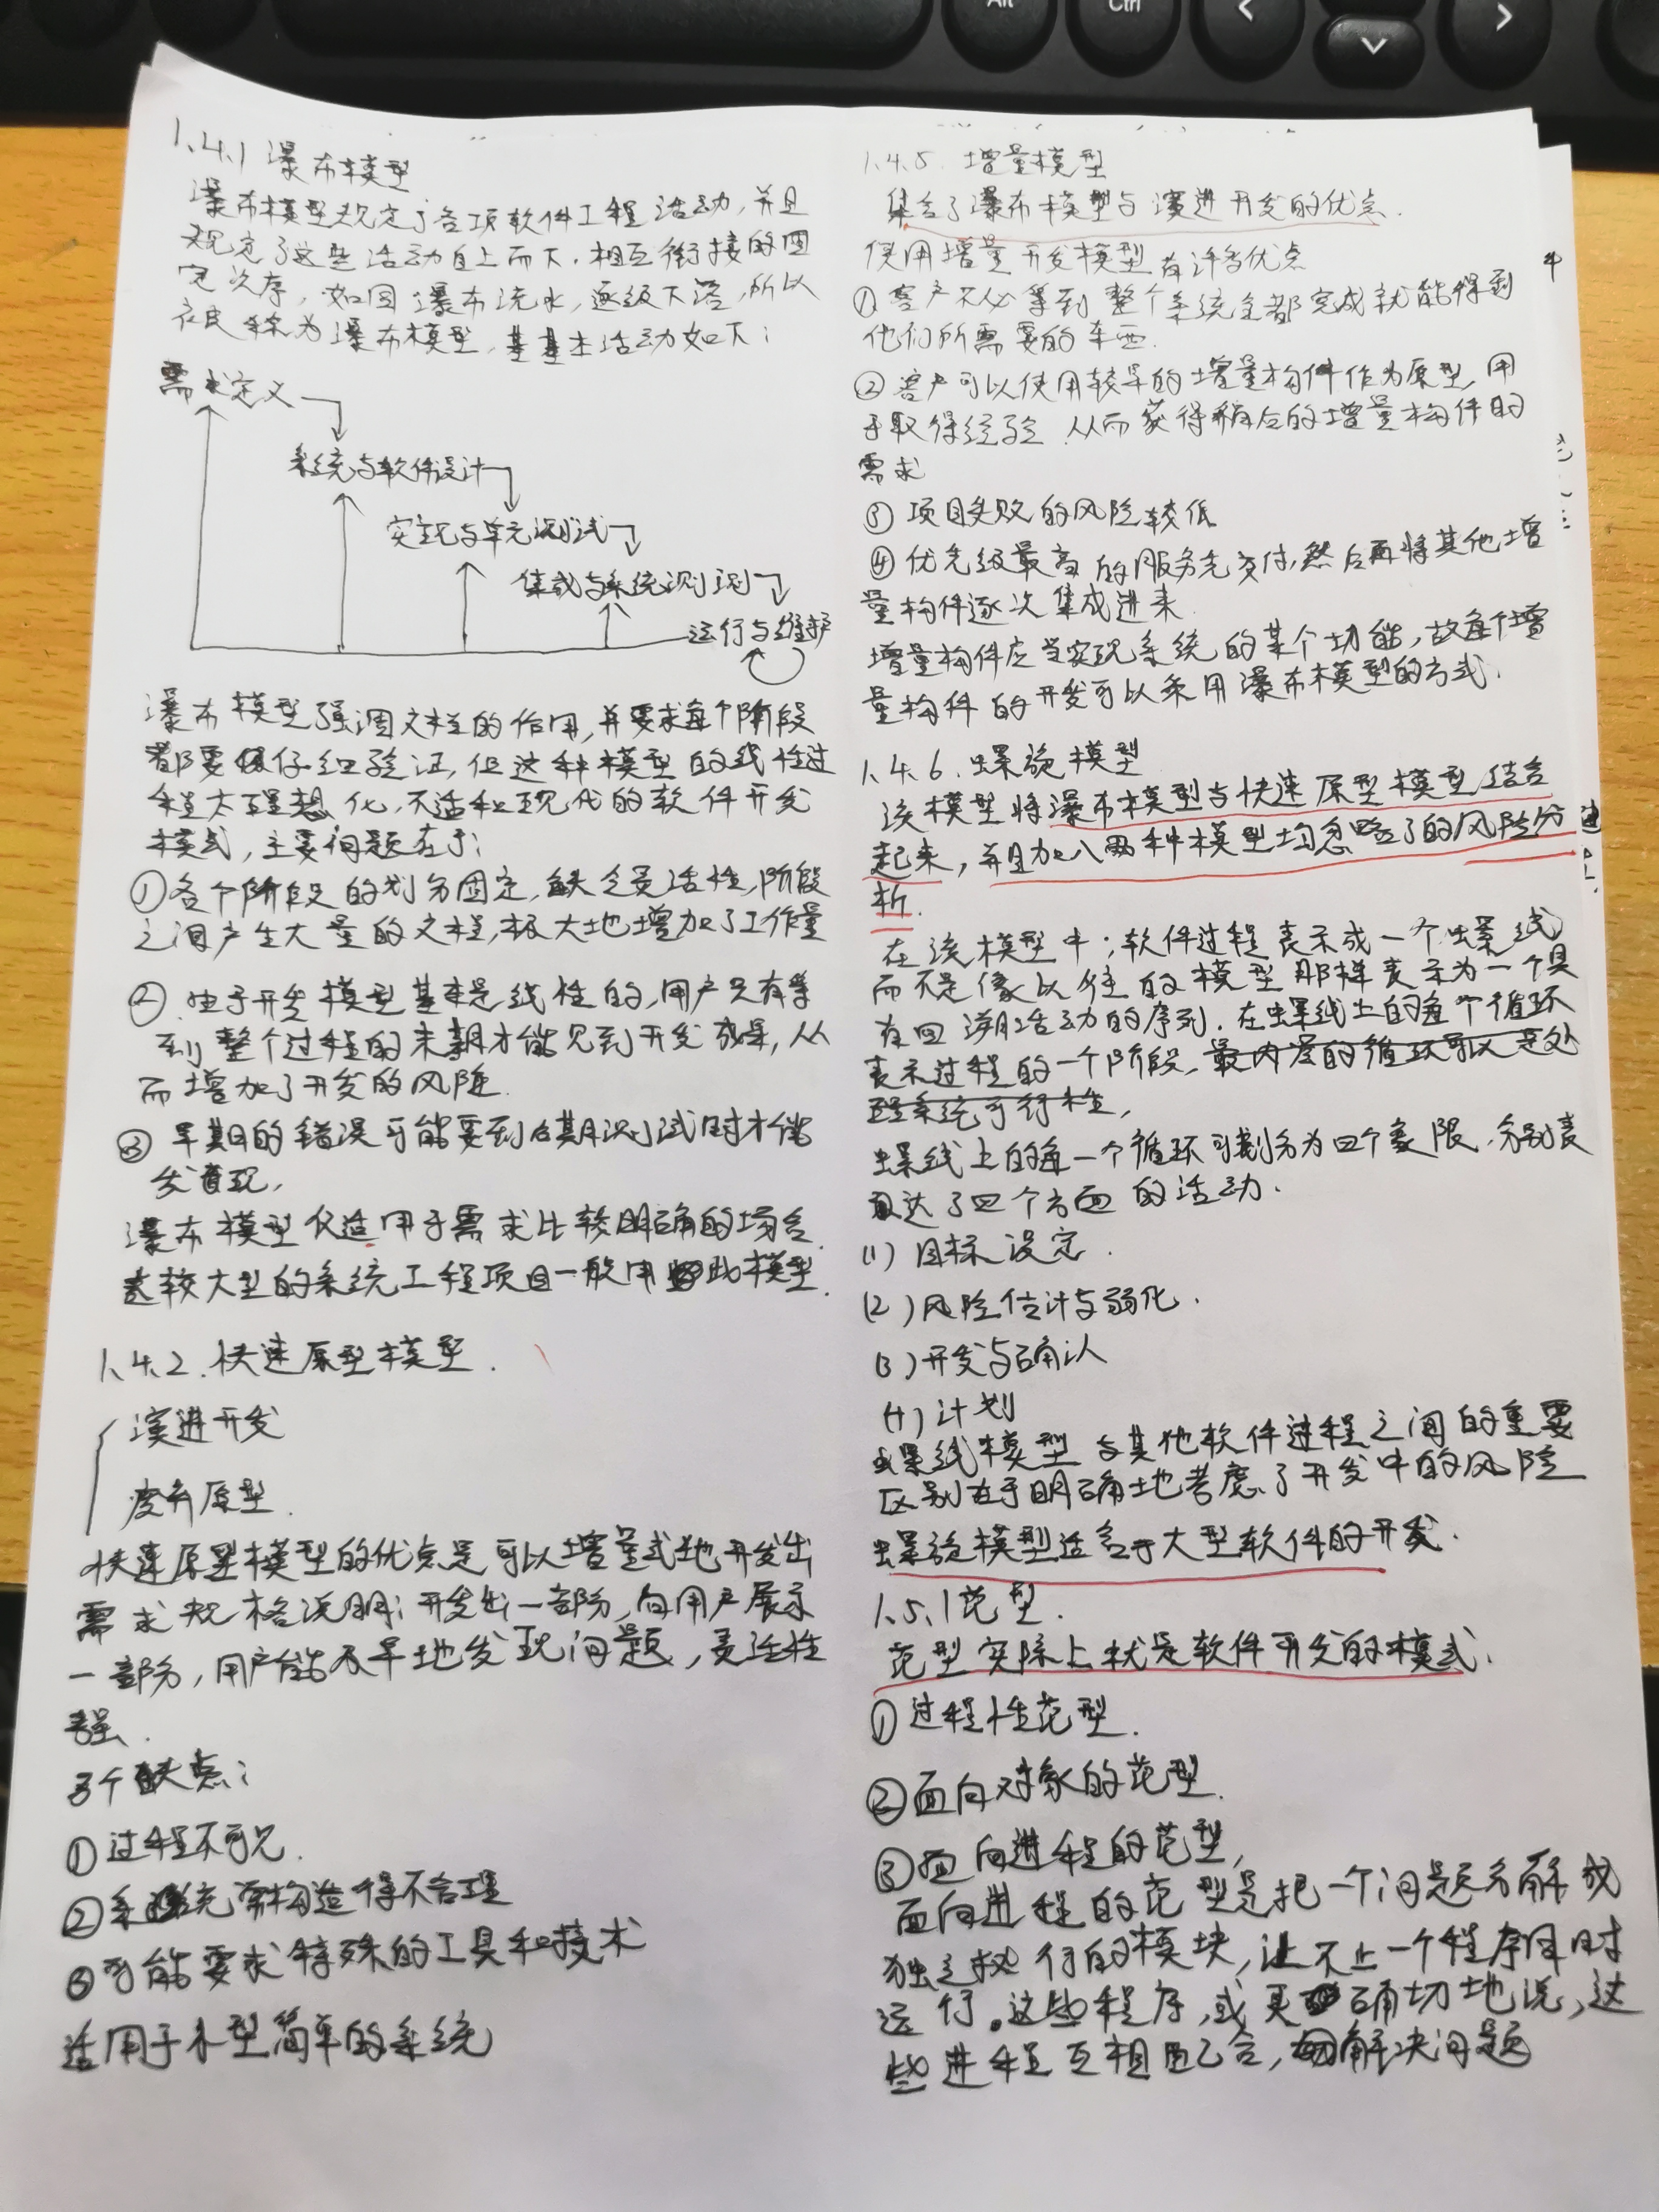 Alt
Ctrl
1.4.1 瀑布模型
瀑布模型规定了各项软件工程活动,并且
规定了这些活动自上而下.相互衔接的固
定次序,如同瀑布流水,逐级下落,所以
被称为瀑布模型,其基本活动如下:
需求定义
系统与软件设计
实现与单元测试
集成与系统测试
运行与维护
瀑布模型强调文档的作用,并要求每个阶段
都要仔细验证,但这种模型的线性过
程太理想化,不适和现代的软件开发
模式,主要问题在于:
①各个阶段的划分固定,缺乏灵活性,阶段
之间产生大量的文档,极大地增加了工作量
②.由于开发模型基本是线性的,用户只有等
到整个过程的末期才能见到开发成果,从
而增加了开发的风险.
③早期的错误可能要到后期测试时才能
发现,
瀑布模型仅适用于需求比较明确的场合.
较大型的系统工程项目一般用此模型.
1.4.2.快速原型模型.
演进开发
废弃原型.
快速原型模型的优点是可以增量式地开发出
需求规格说明;开发出一部分,向用户展示
一部分,用户能及早地发现问题,灵活性
强.
3个缺点:
①过程不可见.
②系统结构造得不合理
③可能要求特殊的工具和技术
适用于小型简单的系统
1.4.5.增量模型
集合了瀑布模型与演进开发的优点.
使用增量开发模型有许多优点
①客户不必等到整个系统全都完成就能得到
他们所需要的东西.
②客户可以使用较早的增量构件作为原型,用
于取得经验.从而获得稍后的增量构件的
需求
③项目失败的风险较低
④优先级最高的服务先交付,然后再将其他增
量构件逐次集成进来
增量构件应当实现系统的某个功能,故每个增
量构件的开发可以采用瀑布模型的方式.
1.4.6.螺旋模型
该模型将瀑布模型与快速原型模型结合
起来,并且加入两种模型均忽略了的风险分
析.
在该模型中;软件过程表示成一个螺线,
而不是像以往的模型那样表示为一个具
有回溯活动的序列.在螺线上的每个循环
表示过程的一个阶段,最内层的循环可以是处
理系统可行性,
螺线上的每一个循环可划分为四个象限.分别表
达了四个方面的活动.
(1)目标设定.
(2)风险估计与弱化.
(3)开发与确认
(4)计划
螺线模型与其他软件过程之间的重要
区别在于明确地考虑了开发中的风险
螺旋模型适合于大型软件的开发.
1.5.1范型.
范型实际上就是软件开发的模式.
①过程性范型.
②面向对象的范型.
③面向进程的范型,
面向进程的范型是把一个问题分解成
独立执行的模块,让不止一个程序同时
运行.这些程序,或更确切地说,这
些进程互相配合,解决问题